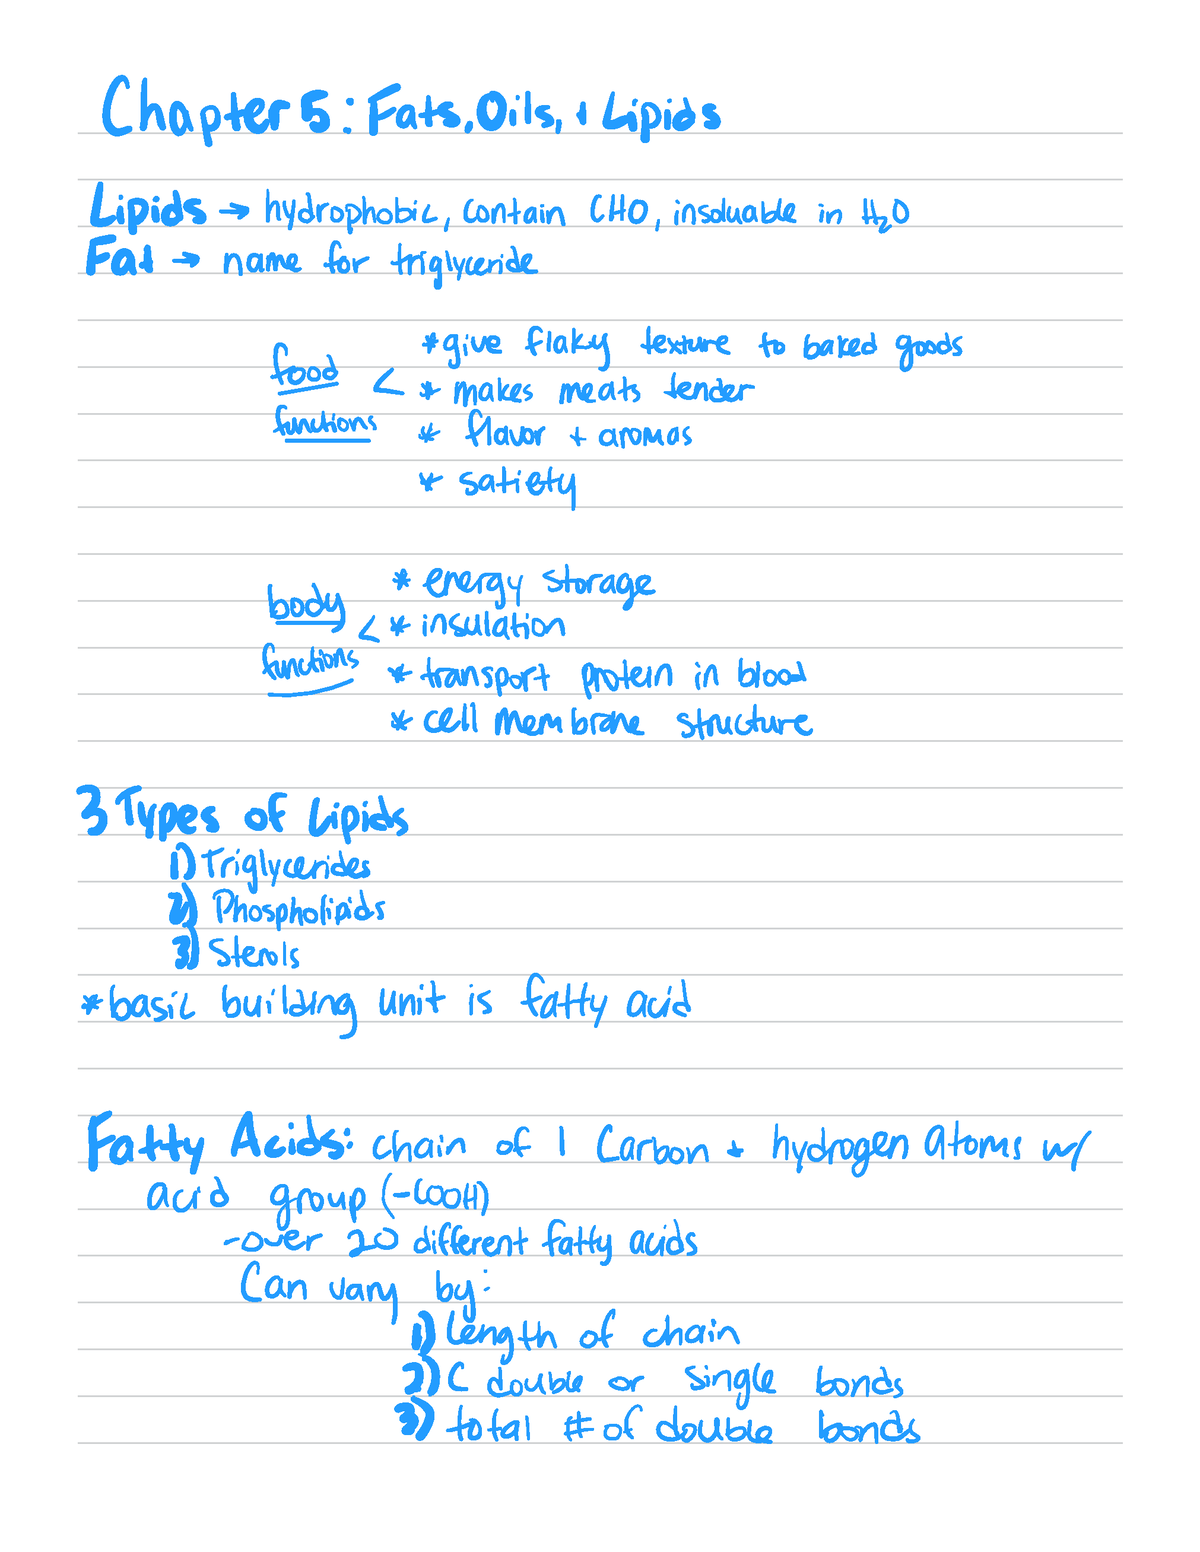 Chapter 5: Fats, Oils, + Lipids
Lipids → hydrophobic, contain CHO, insoluable in H₂O
Fat → name for triglyceride
food functions < * give flaky texture to baked goods
* makes meats tender
* flavor + aromas
* satiety
body functions < * energy storage
* insulation
* transport protein in blood
* cell membrane structure
3 Types of Lipids
1) Triglycerides
2) Phospholipids
3) Sterols
* basic building unit is fatty acid
Fatty Acids: chain of 1 Carbon + hydrogen atoms w/
acid group (-COOH)
- over 20 different fatty acids
Can vary by:
1) length of chain
2) C double or single bonds
3) total # of double bonds